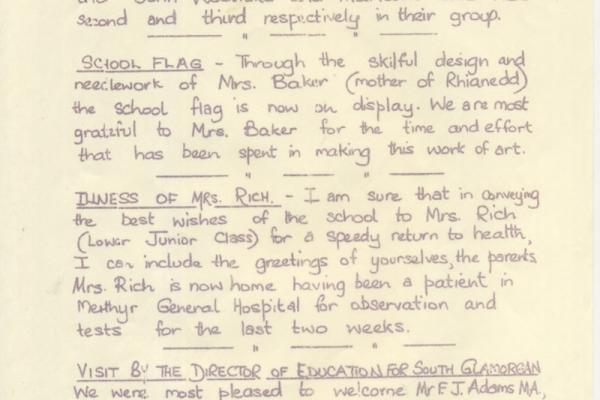 second and third respectively in their group.
SCHOOL FLAG - Through the skilful design and
needlework of Mrs. Baker (mother of Rhianedd)
the school flag is now on display. We are most
grateful to Mrs. Baker for the time and effort
that has been spent in making this work of art.
ILLNESS OF MRS. RICH. - I am sure that in conveying
the best wishes of the school to Mrs. Rich
(Lower Junior Class) for a speedy return to health,
I can include the greetings of yourselves, the parents.
Mrs. Rich is now home having been a patient in
Merthyr General Hospital for observation and
tests for the last two weeks.
VISIT BY THE DIRECTOR OF EDUCATION FOR SOUTH GLAMORGAN
We were most pleased to welcome Mr F. J. Adams MA,